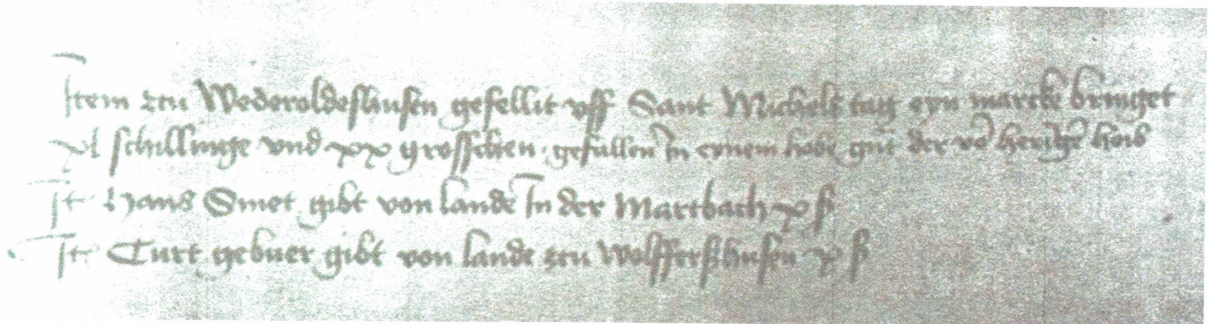 Item zcu Wederoldeshusen gefellit uff Sant Michels tag eyn marcke bringet
xl schillinge und xx groschen gefallen in eynem hobe gut der vo hob
It Hans Smet gibt von lande In der Martbach x ß
It Curt gebuer gibt von lande zcu Wolffershusen x ß